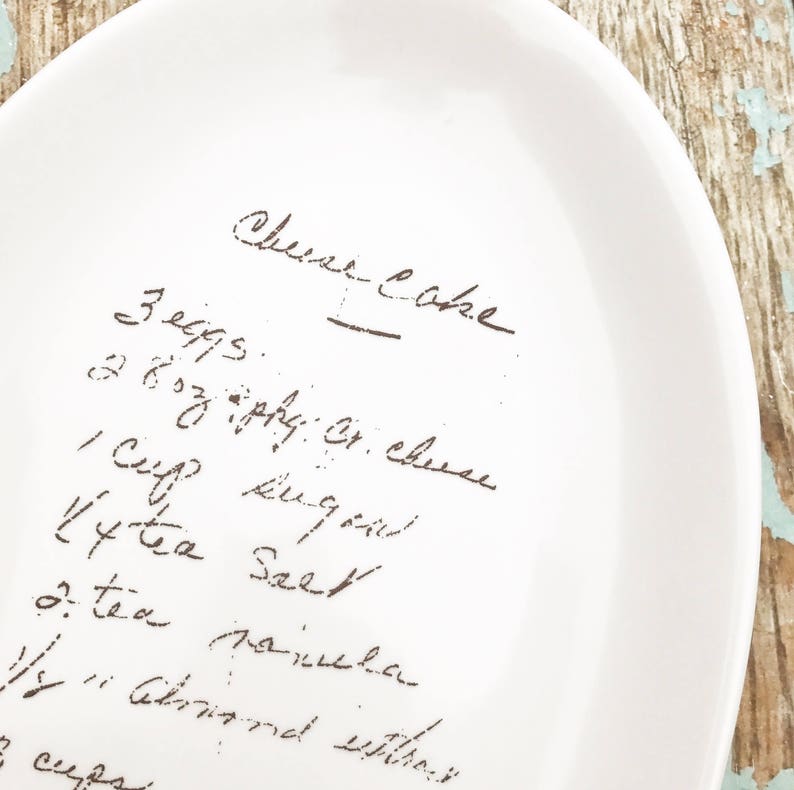 Cheese Cake
3 eggs.
2 8 oz. pkg. Cr. cheese
1 Cup sugar
1/4 tea Salt
2. tea vanilla
" Almond extract
cups